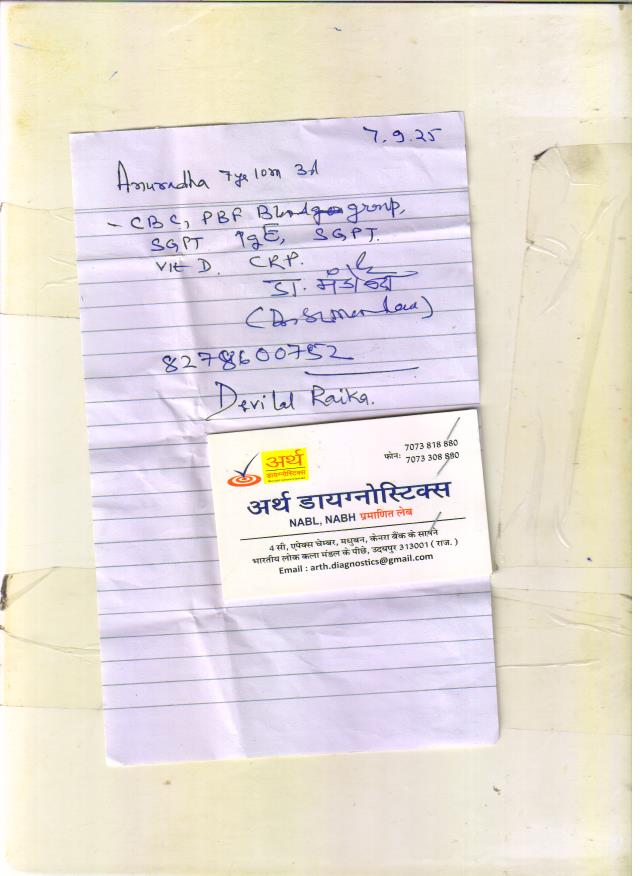 7.9.25
Anuradha 7yr 10m 3d
- CBC, PBF Blood group,
SGPT IgE, SGPT.
Vit D. CRP.
डा.
8278600752
Devilal Raika.
अर्थ
डायग्नोस्टिक्स
फोन: 7073 818 880
7073 308 880
अर्थ डायग्नोस्टिक्स
NABL, NABH प्रमाणित लेब
4 सी, एपेक्स चेम्बर, मधुबन, केनरा बैंक के सामने
भारतीय लोक कला मंडल के पीछे, उदयपुर 313001 ( राज. )
Email : arth.diagnostics@gmail.com